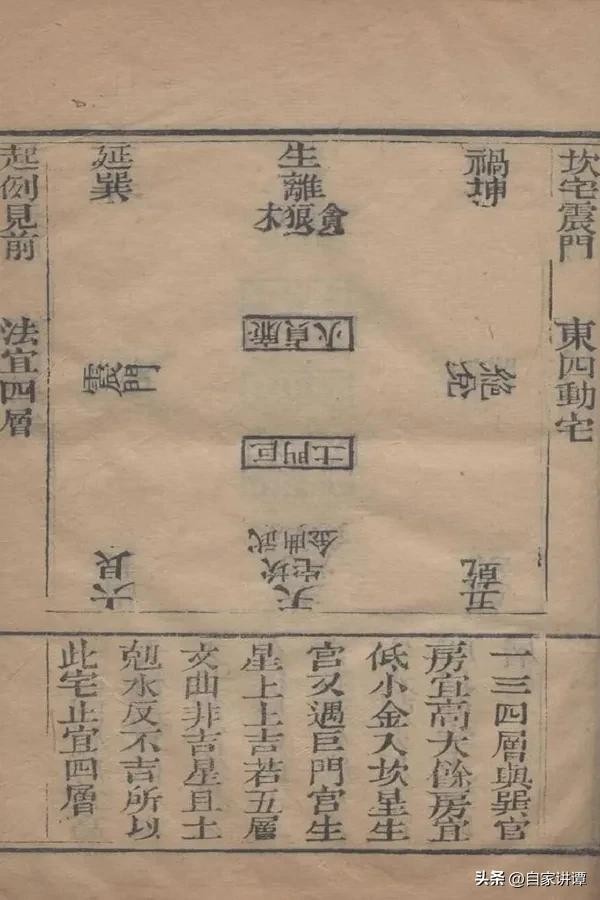 坎宅震門 東四動宅
禍坤
生離
貪狼木
延巽
絕兌
廉貞火
巨門土
震門
五乾
武曲金
天坎宅
六艮
起例見前 法宜四層
一三四層與巽宮
房宜高大餘房宜
低小金入坎星生
宮又遇巨門宮生
星上上吉若五層
文曲非吉星且土
尅水反不吉所以
此宅止宜四層
头条 @自家讲谭